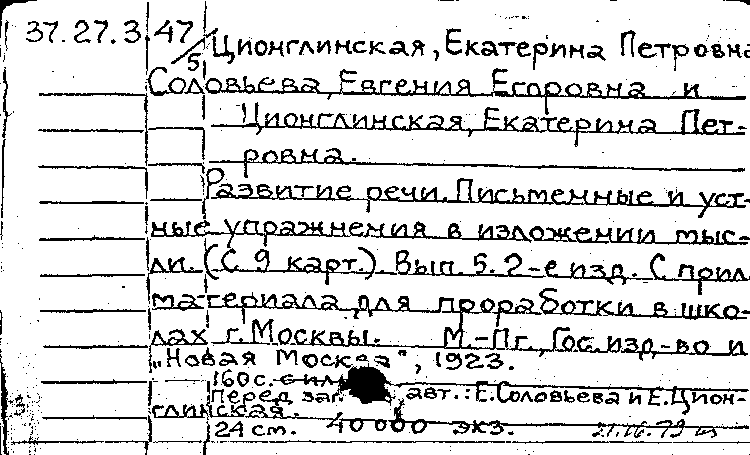 37.27.3.47/5 Ционглинская, Екатерина Петровна
Соловьева, Евгения Егоровна и
Ционглинская, Екатерина Пет-
ровна.
Развитие речи. Письменные и уст-
ные упражнения в изложении мыс-
ли. (С 9 карт.). Вып. 5. 2-е изд. С прил.
материала для проработки в шко-
лах г. Москвы. М.-Пг., Гос. изд-во и
„Новая Москва", 1923.
160 с. с ил.
Перед заг. авт.: Е. Соловьева и Е. Цион-
глинская.
24 см. 40000 экз.